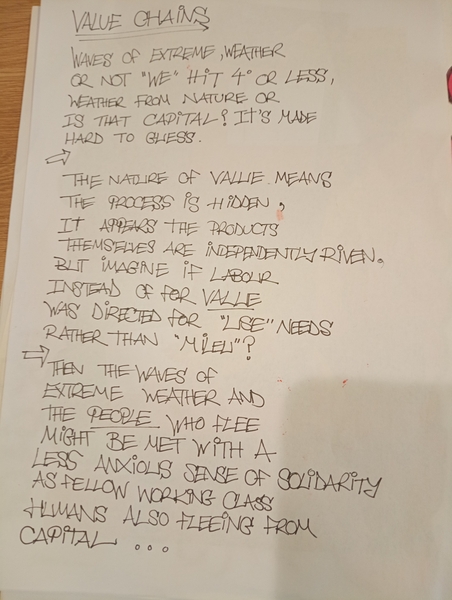 VALUE CHAINS
WAVES OF EXTREME, WEATHER
OR NOT "WE" HIT 4° OR LESS,
WEATHER FROM NATURE OR
IS THAT CAPITAL? IT'S MADE
HARD TO GUESS.
THE NATURE OF VALUE MEANS
THE PROCESS IS HIDDEN,
IT APPEARS THE PRODUCTS
THEMSELVES ARE INDEPENDENTLY RIVEN.
BUT IMAGINE IF LABOUR
INSTEAD OF FOR VALUE
WAS DIRECTED FOR "USE" NEEDS
RATHER THAN "MILEU"?
THEN THE WAVES OF
EXTREME WEATHER AND
THE PEOPLE WHO FLEE
MIGHT BE MET WITH A
LESS ANXIOUS SENSE OF SOLIDARITY
AS FELLOW WORKING CLASS
HUMANS ALSO FLEEING FROM
CAPITAL ...